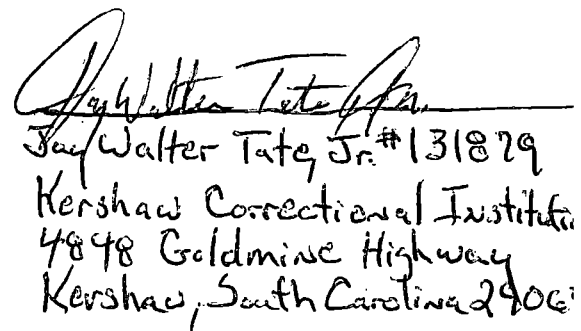 Jay Walter Tate Jr.
Jay Walter Tate, Jr. #131879
Kershaw Correctional Institutio
4848 Goldmine Highway
Kershaw, South Carolina 2906